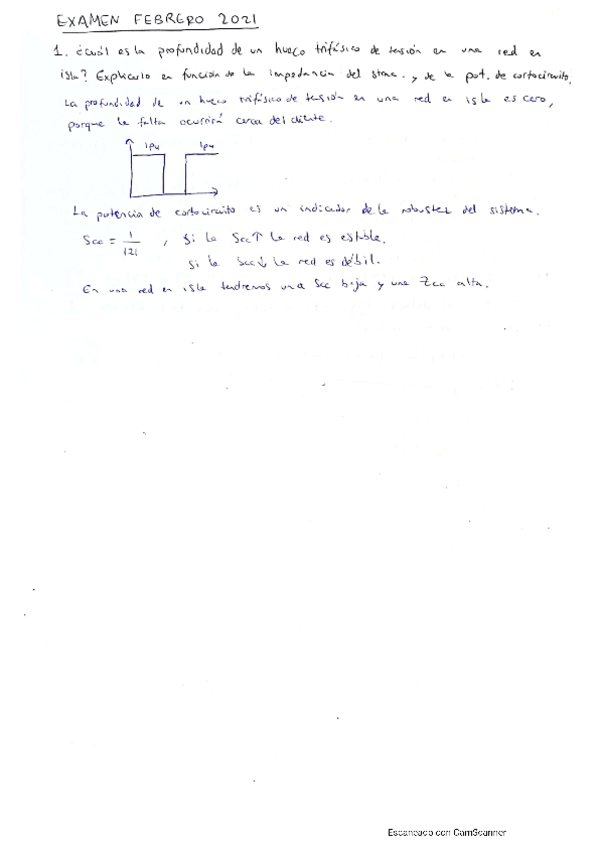 EXAMEN FEBRERO 2021
1. ¿Cuál es la profundidad de un hueco trifásico de tensión en una red en
isla? Explicarlo en función de la impedancia del stma. y de la pot. de cortocircuito.
La profundidad de un hueco trifásico de tensión en una red en isla es cero,
porque la falta ocurrirá cerca del cliente.
1pu 1pu
La potencia de cortocircuito es un indicador de la robustez del sistema.
Scc = 1/|Z| , Si la Scc↑ la red es estable.
Si la Scc↓ la red es débil.
En una red en isla tendremos una Scc baja y una Zcc alta.
Escaneado con CamScanner